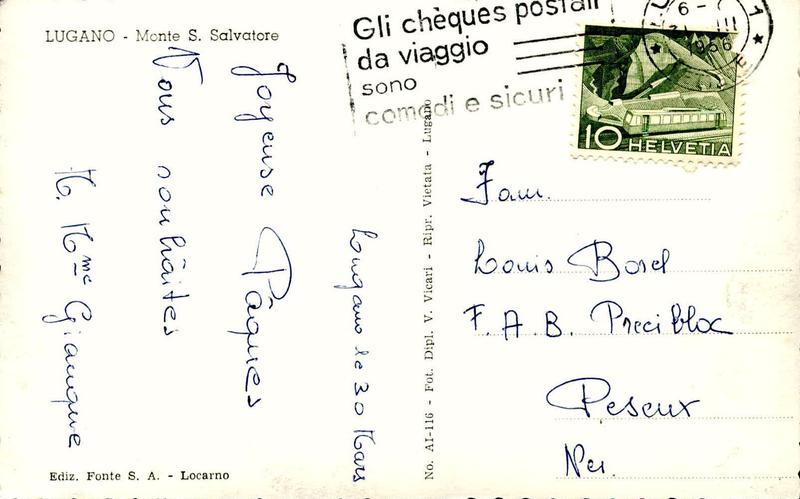 LUGANO - Monte S. Salvatore
Lugano le 30 Mars
Joyeuse Pâques
Vous souhâites
M. Mme Giauque
Ediz. Fonte S. A. - Locarno
No. AI-116 - Fot. Dipl. V. Vicari - Ripr. Vietata - Lugano
Gli chèques postali
da viaggio
sono
comodi e sicuri
6 -
1956
10 HELVETIA
Fam.
Louis Borel
F. A. B. Precibloc
Peseux
Neu.